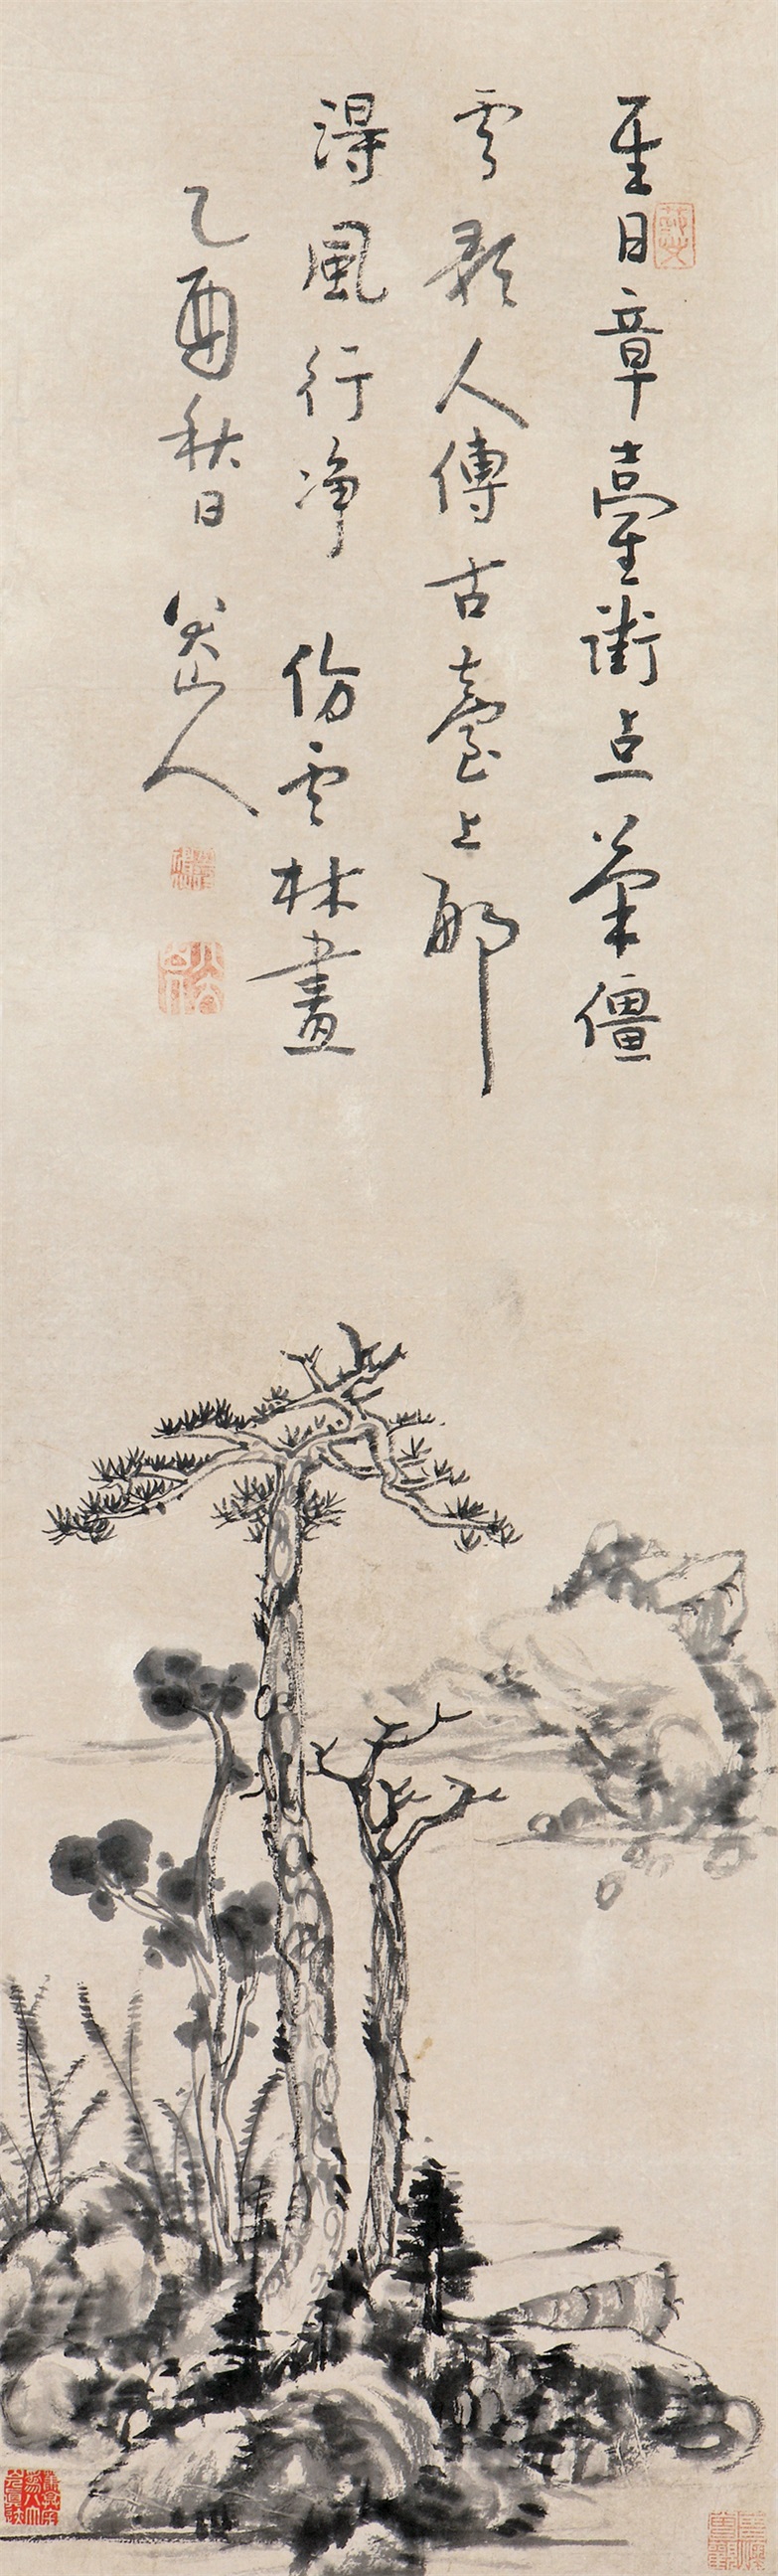 至日章臺街点筆僵
雲影人傳古臺上那
得風行净 仿雲林畫
乙酉秋日 八大山人